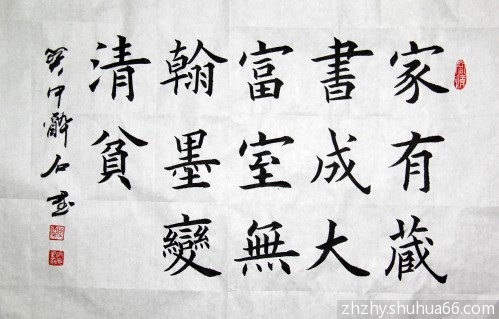 家有藏
書成大
富室無
翰墨變
清貧
石
zhzhy.shuhua66.com